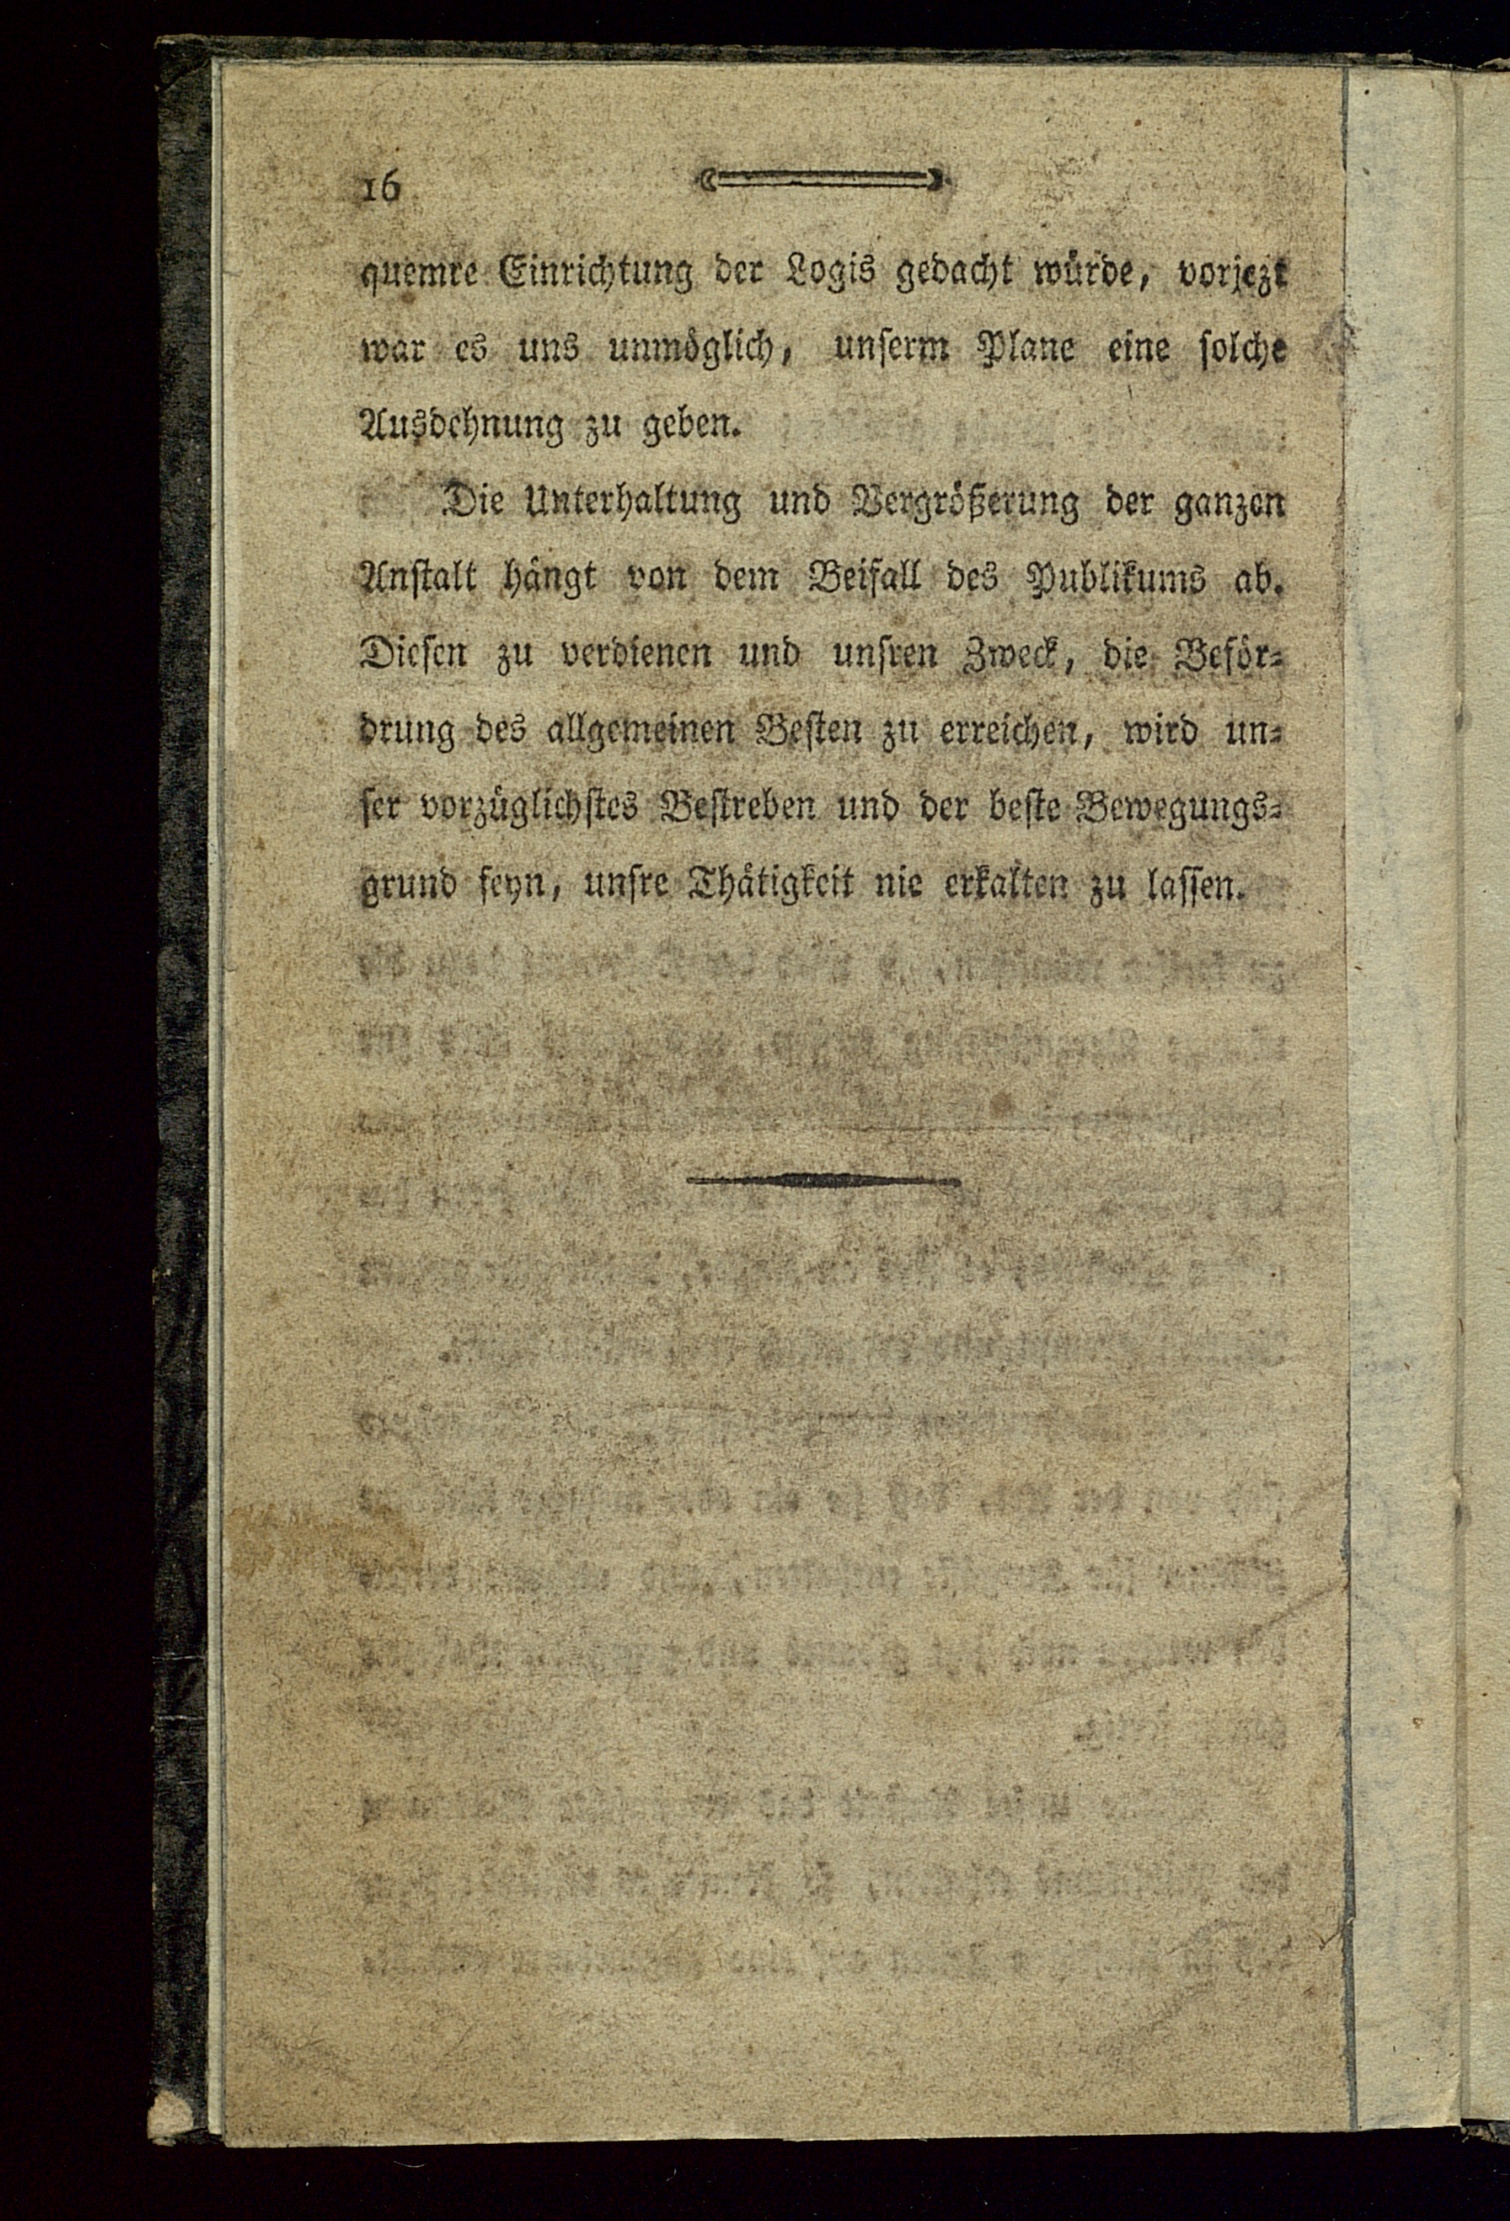 16
quemre Einrichtung der Logis gedacht würde, vorjezt
war es uns unmöglich, unserm Plane eine solche
Ausdehnung zu geben.
Die Unterhaltung und Vergrößerung der ganzen
Anstalt hängt von dem Beifall des Publikums ab.
Diesen zu verdienen und unsren Zweck, die Beför-
drung des allgemeinen Besten zu erreichen, wird un-
ser vorzüglichstes Bestreben und der beste Bewegungs-
grund seyn, unsre Thätigkeit nie erkalten zu lassen.